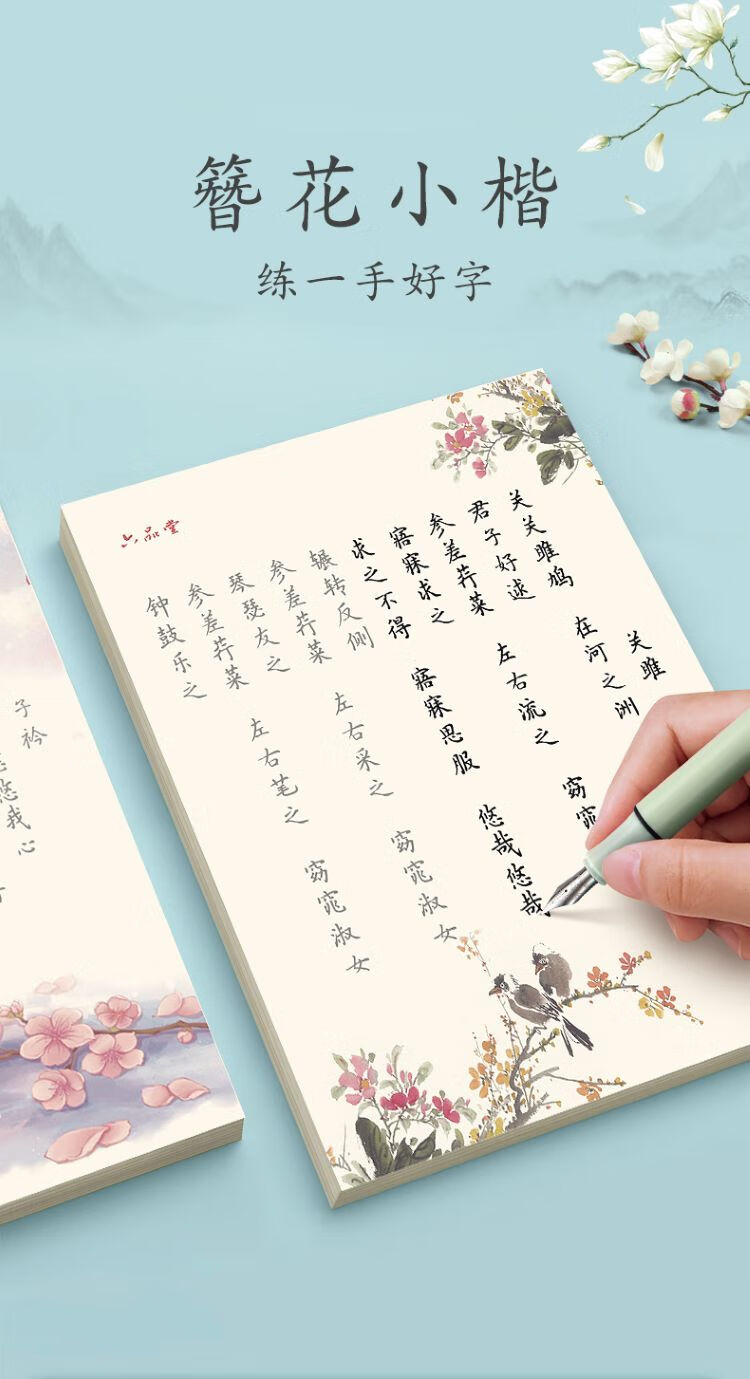 簪花小楷
练一手好字
六品堂
关雎
关关雎鸠 在河之洲
君子好逑
参差荇菜 左右流之 窈窕
寤寐求之
求之不得 寤寐思服 悠哉悠哉
辗转反侧
参差荇菜 左右采之 窈窕淑女
琴瑟友之
参差荇菜 左右笔之 窈窕淑女
钟鼓乐之
子衿
悠我心